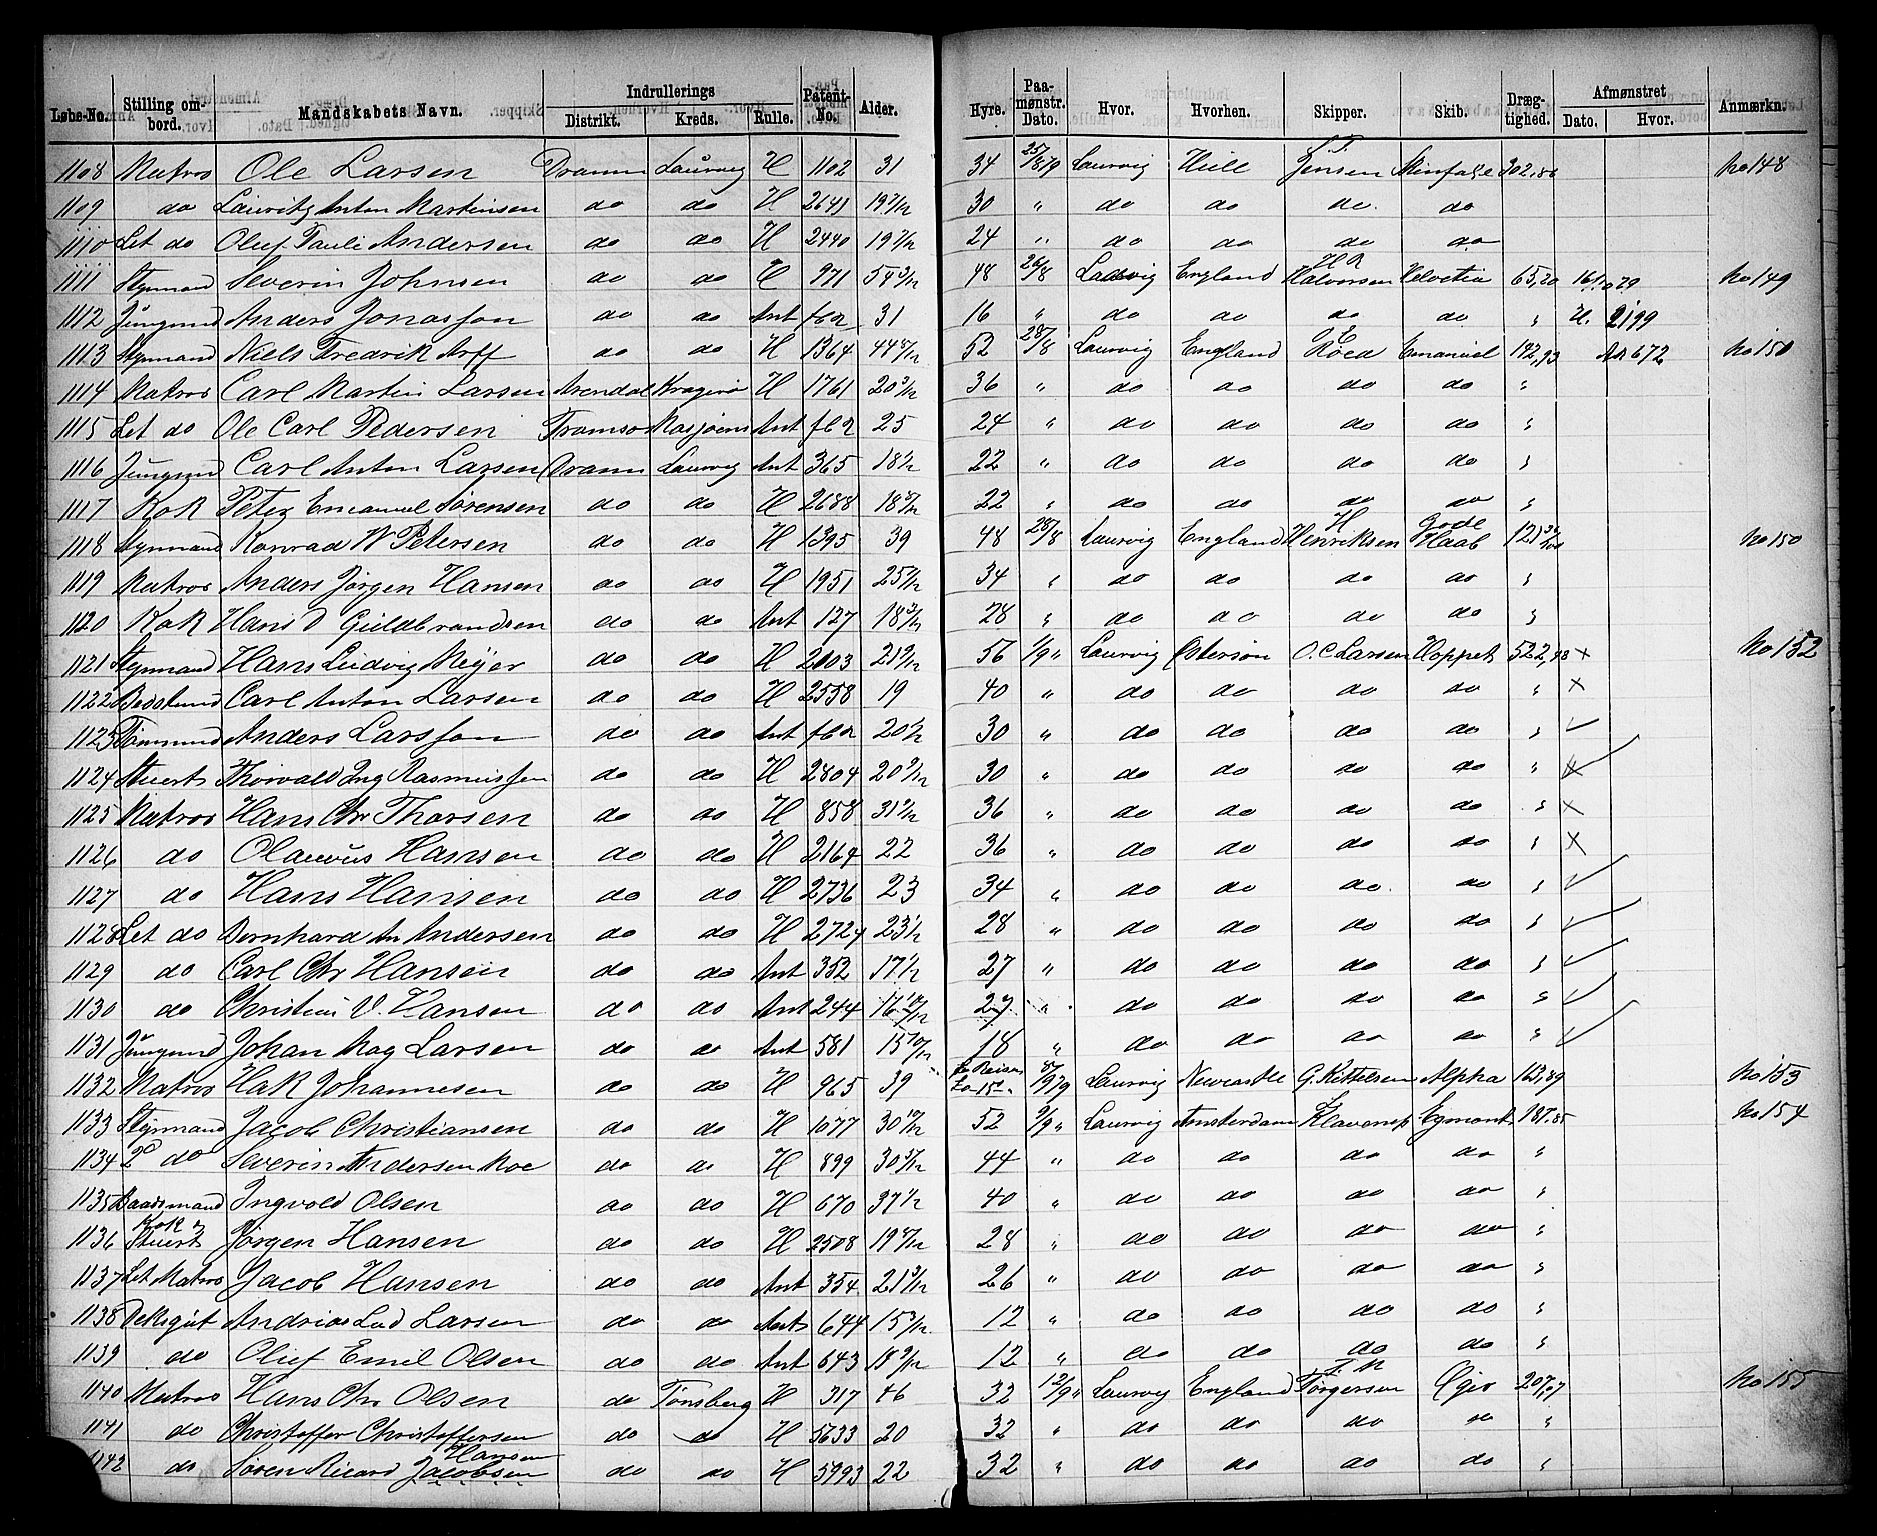 Løbe-No. Stilling ombord. Mandskabets Navn. Indrullerings Distrikt. Kreds. Rulle. Patent-No. Alder. Hyre. Paamønstr. Dato. Hvor. Hvorhen. Skipper. Skib. Drægtighed. Afmønstret Dato. Hvor. Anmærkn.
1108 Matros Ole Larsen Dramm Laurvig H 1102 31 34 25/8 79 Laurvig Hull J Jensen 302,86 No 148
1109 do Lauritz Anton Martinsen do do H 2641 30 " do do do do
1110 Let do Oluf Pauli Andersen do do H 2440 19 24 " do do do do
1111 Stynmand Severin Johnsen do do 971 54 3/12 48 26/8 Laurvig England H R Halvorsen Helvetia 65,20 No 149
1112 Jüngmd Anders Jonasson do do Ant 31 16 " do do do do " 2199
1113 Stynmand Niels Fredrik Arff do do H 1364 44 52 28/8 Laurvig England Roed Emanuel 142,93 672 No 150
1114 Matros Carl Martin Larsen Arendal Kragerø H 1761 20 3/12 36 " do do do do "
1115 Let do Ole Carl Pedersen Tromsø Ant 25 24 " do do do do "
1116 Jüngmd Carl Anton Larsen Dramm Laurvig Ant 365 18 1/2 22 " do do do do "
1117 Kok Peter Emanuel Sørensen do do H 2688 18 22 " do do do do "
1118 Stynmand Konrad W Petersen do do H 1395 39 48 28/8 Laurvig England H Henriksen Gode Haab 121 No 150
1119 Matros Anders Jørgen Hansen do do H 1951 25 34 " do do do do "
1120 Kok Hans D Guldbrandsen do do Ant 127 18 3/12 28 " do do do do "
1121 Stynmand Hans Ludvig Meyer do do H 2003 21 56 1/9 " Laurvig Østersøn O.C Larsen Hoppet 522,48 x No 152
1122 Carl Anton Larsen do do H 2558 19 40 " do do do do " x
1123 Tømmmd Anders Larsson do do Ant 20 1/2 30 " do do do do "
1124 Stuert Thorvald Ing Rasmussen do do H 2804 20 9/12 30 " do do do do " x
1125 Matros Hans Chr Thorsen do do H 858 31 36 " do do do do " x
1126 do Olauus Hansen do do H 2164 22 36 " do do do do " x
1127 do Hans Hansen do do H 2736 23 34 " do do do do "
1128 Let do Bernhard An Andersen do do H 2724 23 1/2 28 " do do do do "
1129 do Carl Chr Hansen do do Ant 352 17 1/2 27 " do do do do "
1130 do Christian V. Hansen do do Ant 244 16 10/12 27 " do do do do "
1131 Jüngmd Johan Mag Larsen do do Ant 581 15 10/12 18 " do do do do "
1132 Matros Hak Johannesen do do H 965 39 Reisen 8/9 79 Laurvig Newcastle G. Kittelsen Alpha 163,89 No 153
1133 Stynmand Jacob Christiansen do do H 1077 30 10/12 52 9/9 " Laurvig Amsterdam Klavenes Egmont 187.85 No 154
1134 2 do Severin Andersen Moe do do H 899 30 44 " do do do do "
1135 Baadsmand Ingvold Olsen do do H 670 37 1/2 40 " do do do do "
1136 Kok & Stuert Jørgen Hansen do do H 2508 19 28 " do do do do "
1137 Let Matros Jacob Hansen do do Ant 354 21 3/12 26 " do do do do "
1138 Deksgut Andrias Lud Larsen do do Ant 644 15 12 " do do do do "
1139 do Oluf Emil Olsen do do Ant 643 18 9/12 12 " do do do do "
1140 Matros Hans Chr Olsen do Tønsberg H 317 46 32 12/9 " Laurvig England Tørgersen 207,07 No 155
1141 do Christoffer Christoffersen do do H 5633 20 32 " do do do do "
1142 do Søren Ricard Jacobsen Hansen do do H 5993 22 32 " do do do do "